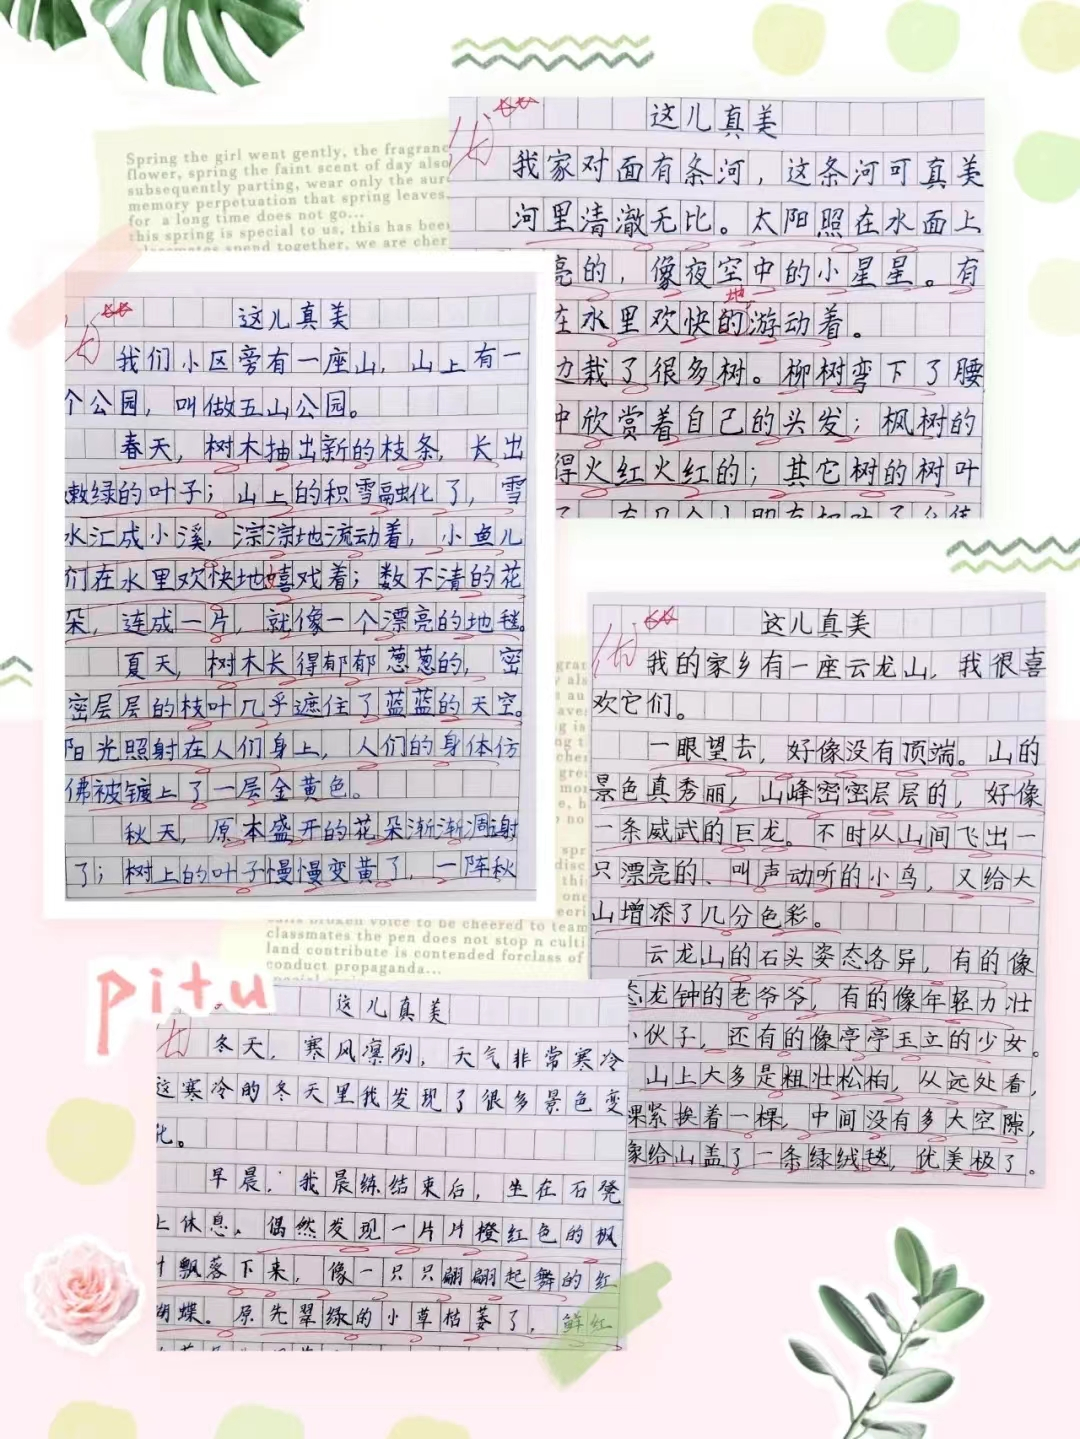 Spring the girl went gently, the fragranc
flower, spring the faint scent of day also
subsequently parting, wear only the aur
memory perpetuation that spring leaves.
for a long time does not go...
this spring is special to us, this has been
classmates spend together, we are cher
这儿真美
我家对面有条河，这条河可真美
河里清澈无比。太阳照在水面上
亮的，像夜空中的小星星。有
在水里欢快的游动着。
地
边栽了很多树。柳树弯下了腰
中欣赏着自己的头发；枫树的
得火红火红的；其它树的树叶
这儿真美
我们小区旁有一座山，山上有一
个公园，叫做五山公园。
春天，树木抽出新的枝条，长出
嫩绿的叶子；山上的积雪融化了，雪
水汇成小溪，淙淙地流动着，小鱼儿
们在水里欢快地嬉戏着；数不清的花
朵，连成一片，就像一个漂亮的地毯。
夏天，树木长得郁郁葱葱的，密
密层层的枝叶几乎遮住了蓝蓝的天空。
阳光照射在人们身上，人们的身体仿
佛被镀上了一层金黄色。
秋天，原本盛开的花朵渐渐凋谢
了；树上的叶子慢慢变黄了，一阵秋
这儿真美
我的家乡有一座云龙山，我很喜
欢它们。
一眼望去，好像没有顶端。山的
景色真秀丽，山峰密密层层的，好像
一条威武的巨龙。不时从山间飞出一
只漂亮的、叫声动听的小鸟，又给大
山增添了几分色彩。
云龙山的石头姿态各异，有的像
态龙钟的老爷爷，有的像年轻力壮
小伙子，还有的像亭亭玉立的少女。
山上大多是粗壮松柏，从远处看，
棵紧挨着一棵，中间没有多大空隙，
像给山盖了一条绿绒毯，优美极了。
classmates the pen does not stop n culti
land contribute is contended forclass of
conduct propaganda...
pitu
这儿真美
冬天，寒风凛冽，天气非常寒冷
这寒冷的冬天里我发现了很多景色变
化。
早晨，我晨练结束后，坐在石凳
上休息，偶然发现一片片橙红色的枫
叶飘落下来，像一只只翩翩起舞的红
蝴蝶。原先翠绿的小草枯萎了，鲜红